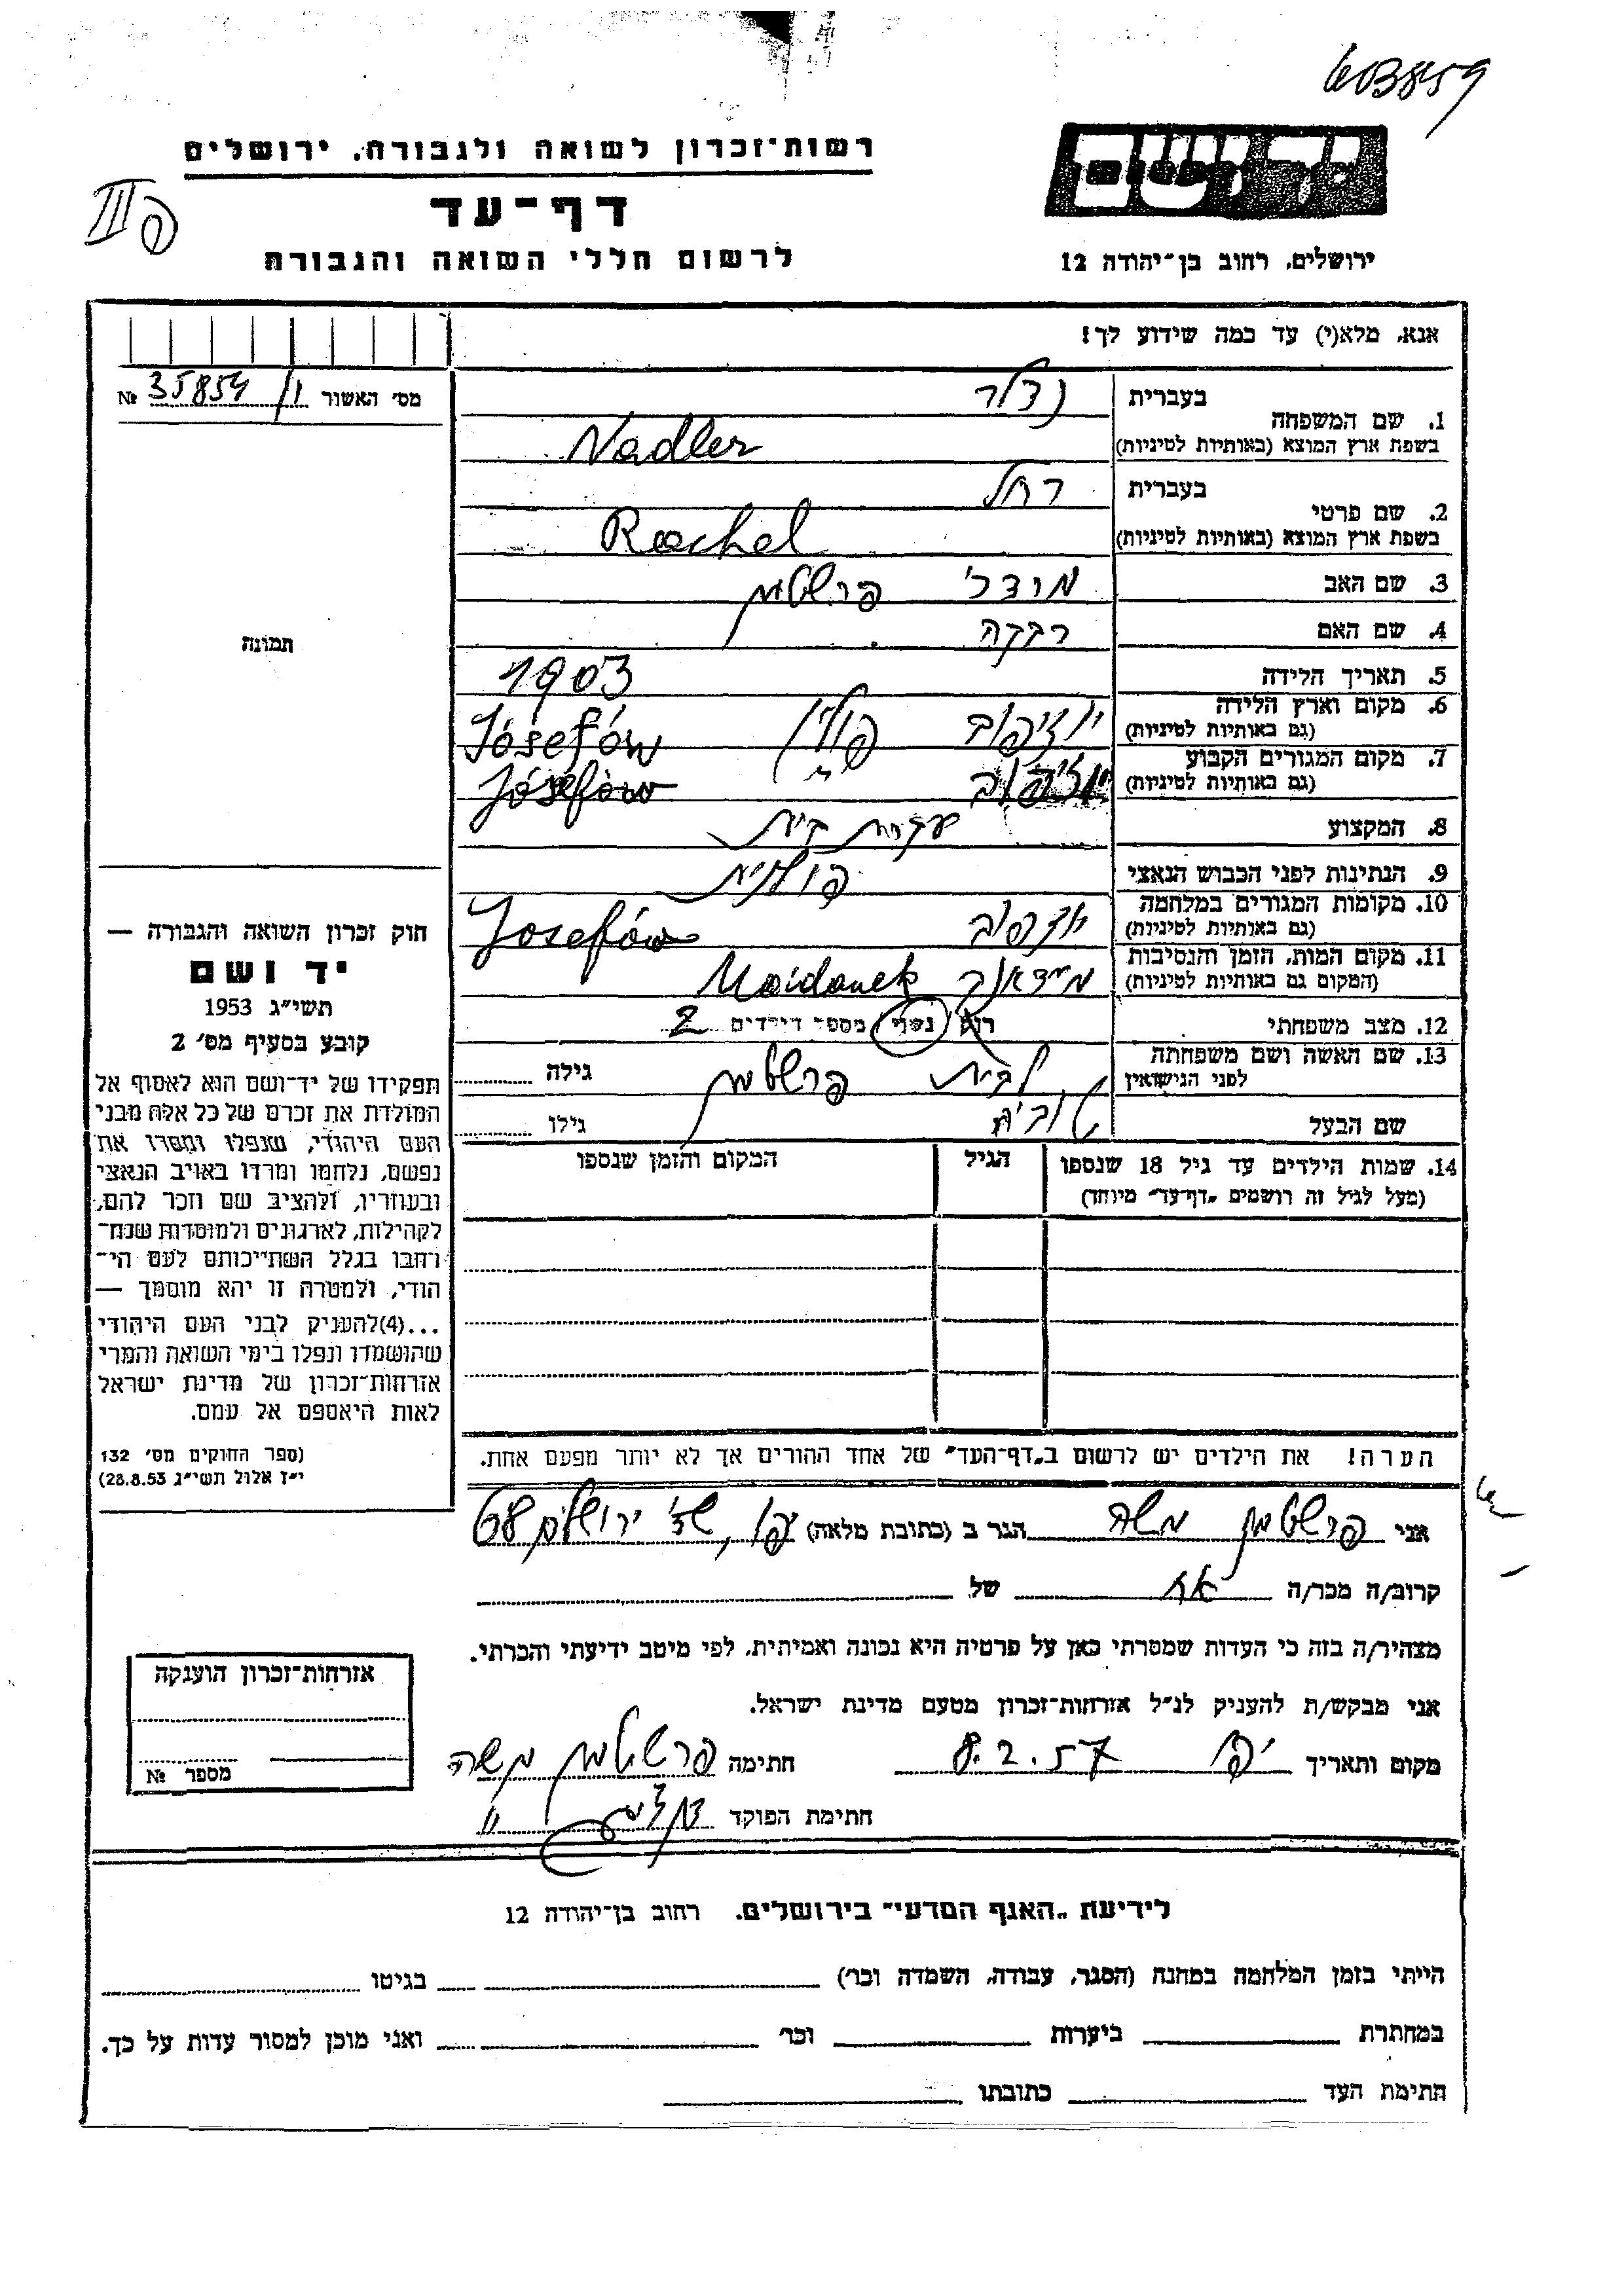 603859
רשות־זכרון לשואה ולגבורה, ירושלים
יד ושם
III פ
דף־עד
לרשום חללי השואה והגבורה
ירושלים, רחוב בן־יהודה 12
אנא, מלא(י) עד כמה שידוע לך!
מס׳ האשור 35854/1 №
בעברית נדלר
1. שם המשפחה
בשפת ארץ המוצא (באותיות לטיניות) Nadler
בעברית רחל
2. שם פרטי
בשפת ארץ המוצא (באותיות לטיניות) Rachel
3. שם האב מרדכי פרשטמן
4. שם האם רבקה
תמונה
5. תאריך הלידה 1903
6. מקום וארץ הלידה יוזיפוב פולין Józefów
(גם באותיות לטיניות)
7. מקום המגורים הקבוע יוזיפוב Józefów
(גם באותיות לטיניות)
8. המקצוע עקרת בית
9. הנתינות לפני הכבוש הנאצי פולנית
10. מקומות המגורים במלחמה יוזפוב Josefów
(גם באותיות לטיניות)
11. מקום המות, הזמן והנסיבות מיידאנק Maidanek
(המקום גם באותיות לטיניות)
12. מצב משפחתי רוק נשוי מספר הילדים 2
13. שם האשה ושם משפחתה לבית פרשטמן גילה
לפני הנישואין
שם הבעל טוביה גילו
14. שמות הילדים עד גיל 18 שנספו הגיל המקום והזמן שנספו
(מעל לגיל זה רושמים „דף־עד״ מיוחד)
הערה! את הילדים יש לרשום ב„דף־העד״ של אחד ההורים אך לא יותר מפעם אחת.
חוק זכרון השואה והגבורה —
יד ושם
תשי״ג 1953
קובע בסעיף מס׳ 2
תפקידו של יד־ושם הוא לאסוף אל
המולדת את זכרם של כל אלה מבני
העם היהודי, שנפלו ומסרו את
נפשם, נלחמו ומרדו באויב הנאצי
ובעוזריו, ולהציב שם וזכר להם,
לקהילות, לארגונים ולמוסדות שנח־
רחבו בגלל השתייכותם לעם הי־
הודי, ולמטרה זו יהא מוסמך —
...(4)להעניק לבני העם היהודי
שהושמדו ונפלו בימי השואה והמרי
אזרחות־זכרון של מדינת ישראל
לאות היאספם אל עמם.
(ספר החוקים מס׳ 132
י״ז אלול תשי״ג 28.8.53)
אני פרשטמן משה הגר ב (כתובת מלאה) יפו, שד׳ ירושלים 68
קרוב/ה מכר/ה אח של
מצהיר/ה בזה כי העדות שמסרתי כאן על פרטיה היא נכונה ואמיתית, לפי מיטב ידיעתי והכרתי.
אני מבקש/ת להעניק לנ״ל אזרחות־זכרון מטעם מדינת ישראל.
מקום ותאריך יפו 8.2.57 חתימה פרשטמן משה
חתימת הפוקד
אזרחות־זכרון הוענקה
מספר №
לידיעת „האגף המדעי״ בירושלים, רחוב בן־יהודה 12
הייתי בזמן המלחמה במחנה (הסגר, עבודה, השמדה וכו׳) בגיטו
במחתרת ביערות וכו׳ ואני מוכן למסור עדות על כך.
חתימת העד כתובתו